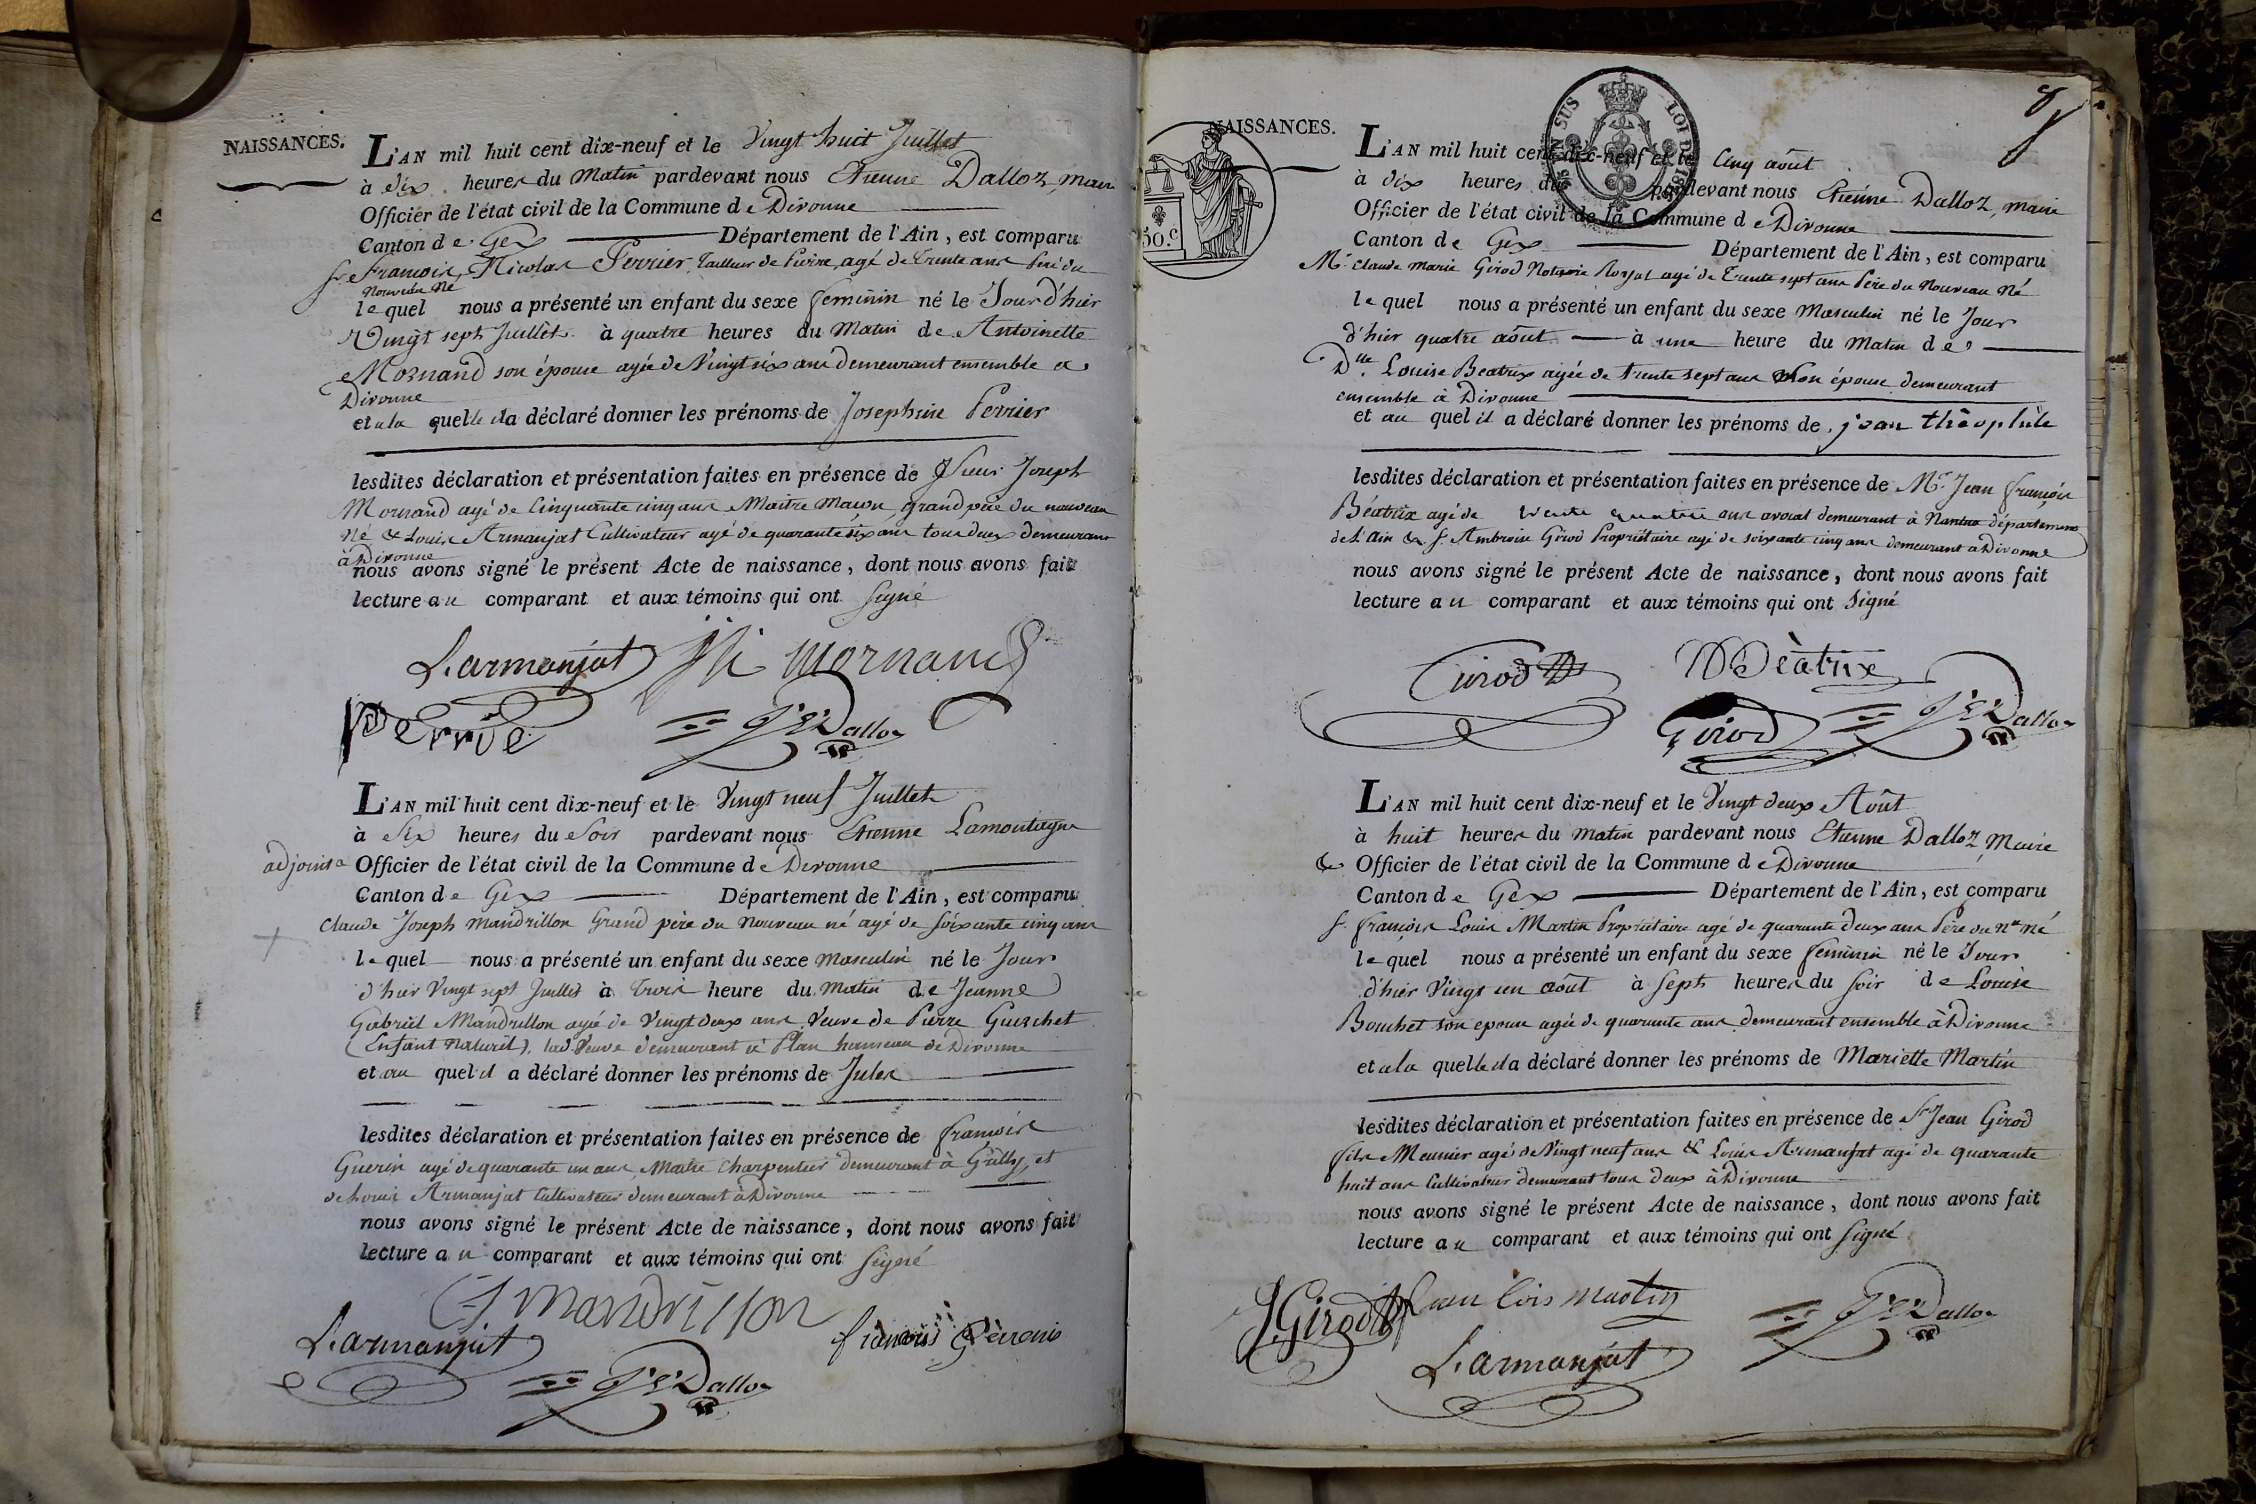 NAISSANCES.
L'AN mil huit cent dix-neuf et le Vingt huit Juillet
à dix heures du Matin pardevant nous Etienne Dalloz, maire
Officier de l'état civil de la Commune de Divonne
Canton de Gex Département de l'Ain, est comparu
Sr. François Nicolas Perrier, Tailleur de Pierre, agé de Trente ans Père du
Nouveau Né
lequel nous a présenté un enfant du sexe feminin né le Jour d'hier
Vingt sept Juillet à quatre heures du Matin de Antoinette
Mornand son épouse agée de Vingt six ans demeurant ensemble a
Divonne
et a la quelle il a déclaré donner les prénoms de Josephine Perrier
lesdites déclaration et présentation faites en présence de Sieur Joseph
Mornand agé de Cinquante cinq ans Maitre Maçon, grand père du nouveau
Né & Louis Armanjat Cultivateur agé de quarante six ans tous deux demeurant
à Divonne
nous avons signé le présent Acte de naissance, dont nous avons fait
lecture au comparant et aux témoins qui ont Signé
L. armanjat mornand
Perrie Dalloz
L'AN mil huit cent dix-neuf et le Vingt neuf Juillet
à Six heures du Soir pardevant nous Etienne Lamontagne
adjoint Officier de l'état civil de la Commune de Divonne
Canton de Gex Département de l'Ain, est comparu
Claude Joseph Mandrillon Grand père du Nouveau né agé de soixante cinq ans
lequel nous a présenté un enfant du sexe masculin né le Jour
d'hier Vingt sept Juillet à trois heure du Matin de Jeanne
Gabriel Mandrillon agée de Vingt deux ans Veuve de Pierre Guerchet
(Enfant Naturel). lad. Veuve demeurant à Plan hameau de Divonne
et au quel il a déclaré donner les prénoms de Jules
lesdites déclaration et présentation faites en présence de François
Guerin agé de quarante un ans, Maitre Charpentier demeurant à Grilly, et
de Louis Armanjat Cultivateur demeurant à Divonne
nous avons signé le présent Acte de naissance, dont nous avons fait
lecture au comparant et aux témoins qui ont Signé
mandrillon
L. armanjat
Dalloz
8
NAISSANCES.
50.c
L'AN mil huit cent dix-neuf et le Cinq août
à dix heures du pardevant nous Etienne Dalloz, maire
Officier de l'état civil de la Commune de Divonne
Canton de Gex Département de l'Ain, est comparu
Mr. Claude Marie Girod Notaire Royal agé de Trente sept ans Père du Nouveau Né
lequel nous a présenté un enfant du sexe Masculin né le Jour
d'hier quatre août à une heure du Matin de
Dlle. Louise Beatrix agée de trente sept ans son épouse demeurant
ensemble à Divonne
et au quel il a déclaré donner les prénoms de jean théophile
lesdites déclaration et présentation faites en présence de Mr. Jean françois
Béatrix agé de trente quatre ans avocat demeurant à Nantua département
de L'Ain & S. Ambroise Girod Propriétaire agé de soixante cinq ans demeurant à Divonne
nous avons signé le présent Acte de naissance, dont nous avons fait
lecture au comparant et aux témoins qui ont Signé
Girod Béatrix
Girod Dalloz
L'AN mil huit cent dix-neuf et le Vingt deux Août
à huit heures du matin pardevant nous Etienne Dalloz, Maire
& Officier de l'état civil de la Commune de Divonne
Canton de Gex Département de l'Ain, est comparu
S. François Louis Martin Propriétaire agé de quarante deux ans Père du Nau Né
lequel nous a présenté un enfant du sexe feminin né le Jour
d'hier Vingt un août à Sept heures du Soir de Louise
Bouchet son epouse agée de quarante ans demeurant ensemble à Divonne
et a la quelle il a déclaré donner les prénoms de Mariette Martin
lesdites déclaration et présentation faites en présence de Sr Jean Girod
fils Meunier agé de Vingt neuf ans & Louis Armanjat agé de quarante
huit ans Cultivateur demeurant tous deux à Divonne
nous avons signé le présent Acte de naissance, dont nous avons fait
lecture au comparant et aux témoins qui ont Signé
J Girod martin
L. armanjat Dalloz